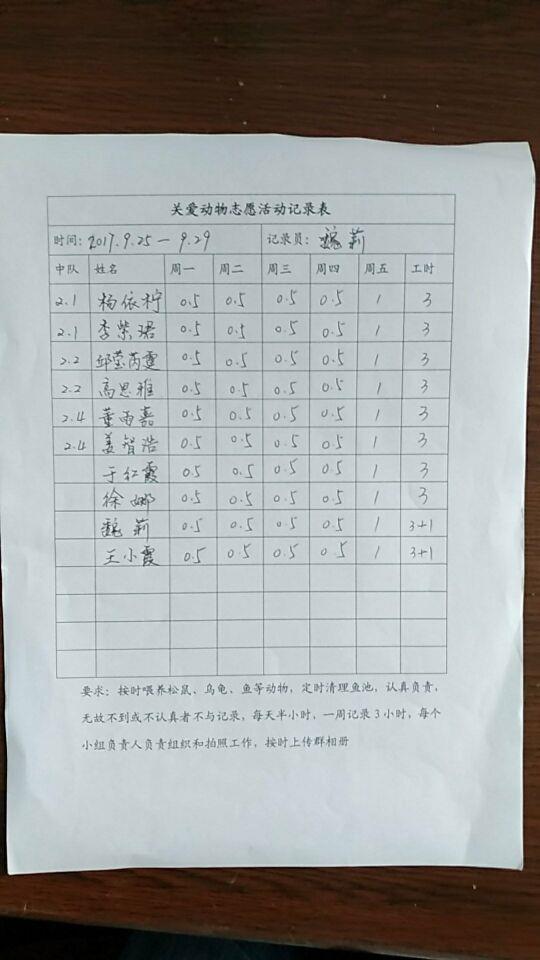 关爱动物志愿活动记录表
时间：2017.9.25－9.29 记录员：魏莉
中队 姓名 周一 周二 周三 周四 周五 工时
2.1 杨依柠 0.5 0.5 0.5 0.5 1 3
2.1 李紫珺 0.5 0.5 0.5 0.5 1 3
2.2 邱莹芮雯 0.5 0.5 0.5 0.5 1 3
2.2 高思雅 0.5 0.5 0.5 0.5 1 3
2.4 董雨嘉 0.5 0.5 0.5 0.5 1 3
2.4 姜智浩 0.5 0.5 0.5 0.5 1 3
于红霞 0.5 0.5 0.5 0.5 1 3
徐娜 0.5 0.5 0.5 0.5 1 3
魏莉 0.5 0.5 0.5 0.5 1 3+1
王小霞 0.5 0.5 0.5 0.5 1 3+1
要求：按时喂养松鼠、乌龟、鱼等动物，定时清理鱼池，认真负责，
无故不到或不认真者不与记录，每天半小时，一周记录3小时，每个
小组负责人负责组织和拍照工作，按时上传群相册